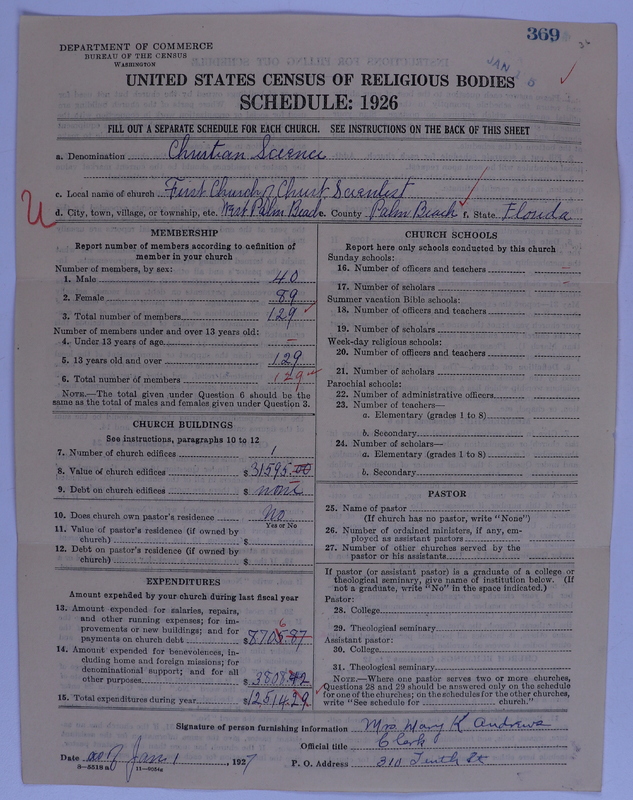 369
DEPARTMENT OF COMMERCE
BUREAU OF THE CENSUS
WASHINGTON
JAN
UNITED STATES CENSUS OF RELIGIOUS BODIES
SCHEDULE: 1926
FILL OUT A SEPARATE SCHEDULE FOR EACH CHURCH. SEE INSTRUCTIONS ON THE BACK OF THIS SHEET
a. Denomination Christian Science
c. Local name of church First Church of Christ Scientist
U
d. City, town, village, or township, etc. West Palm Beach e. County Palm Beach f. State Florida
MEMBERSHIP
Report number of members according to definition of
member in your church
Number of members, by sex:
1. Male 40
2. Female 89
3. Total number of members 129
Number of members under and over 13 years old:
4. Under 13 years of age –
5. 13 years old and over 129
6. Total number of members 129
NOTE.—The total given under Question 6 should be
same as the total of males and females given under Question 3.
CHURCH BUILDINGS
See instructions, paragraphs 10 to 12
7. Number of church edifices 1
8. Value of church edifices $31595.00
9. Debt on church edifices $ none
10. Does church own pastor's residence No
Yes or No
11. Value of pastor's residence (if owned by
church) $
12. Debt on pastor's residence (if owned by
church) $
EXPENDITURES
Amount expended by your church during last fiscal year
13. Amount expended for salaries, repairs,
and other running expenses; for im-
provements or new buildings; and for
payments on church debt $8705.87
6
14. Amount expended for benevolences, in-
cluding home and foreign missions; for
denominational support; and for all
other purposes $3808.42
15. Total expenditures during year $12514.29
CHURCH SCHOOLS
Report here only schools conducted by this church
Sunday schools:
16. Number of officers and teachers
17. Number of scholars
Summer vacation Bible schools:
18. Number of officers and teachers
19. Number of scholars
Week-day religious schools:
20. Number of officers and teachers
21. Number of scholars
Parochial schools:
22. Number of administrative officers
23. Number of teachers—
a. Elementary (grades 1 to 8)
b. Secondary
24. Number of scholars—
a. Elementary (grades 1 to 8)
b. Secondary
PASTOR
25. Name of pastor
(If church has no pastor, write "None")
26. Number of ordained ministers, if any, em-
ployed as assistant pastors
27. Number of other churches served by the
pastor or his assistants
If pastor (or assistant pastor) is a graduate of a college or
theological seminary, give name of institution below. (If
not a graduate, write "No" in the space indicated.)
Pastor:
28. College
29. Theological seminary
Assistant pastor:
30. College
31. Theological seminary
NOTE.—Where one pastor serves two or more churches,
Questions 28 and 29 should be answered only on the schedule
for one of the churches; on the schedules for the other churches,
write "See schedule for church."
Signature of person furnishing information Mrs. Mary K Andrews
Official title Clerk
Date as of Jan 1, 1927 P. O. Address 310 Tenth St
8—5518a 11—9054a